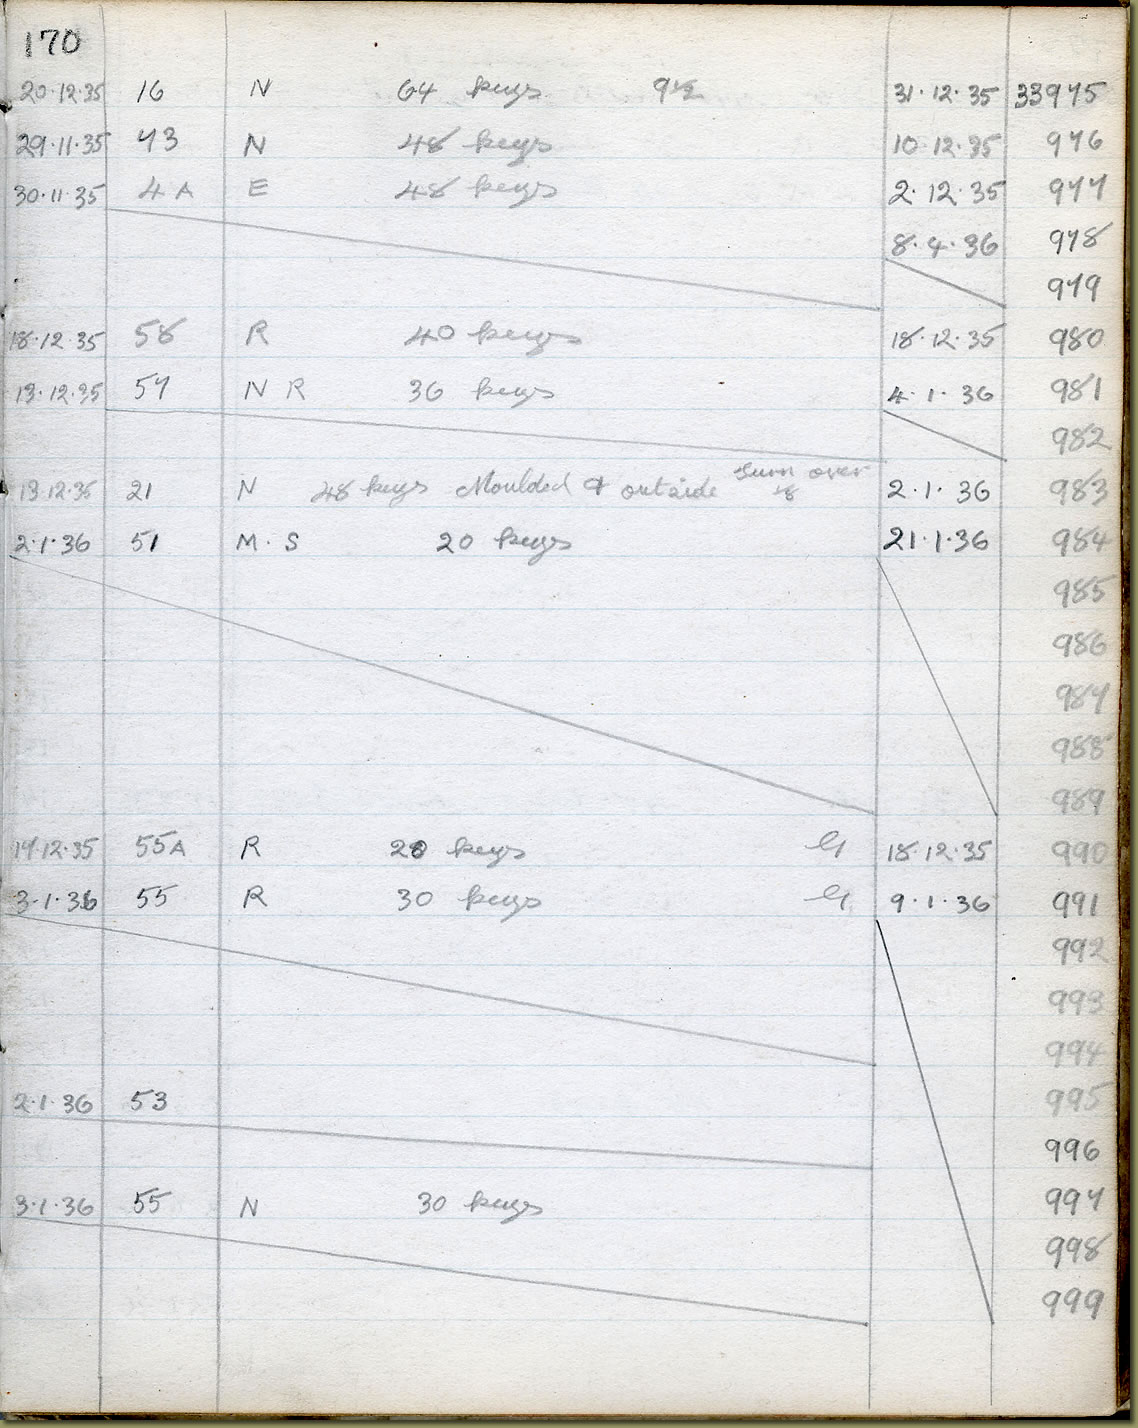 170
20.12.35 16 N 64 keys 9½ 31.12.35 33975
29.11.35 73 N 48 keys 10.12.35 976
30.11.35 4A E 48 keys 2.12.35 977
8.4.36 978
979
18.12.35 58 R 40 keys 18.12.35 980
13.12.35 57 N R 36 keys 4.1.36 981
982
13.12.35 21 N 48 keys Moulded & outside turn over 2.1.36 983
2.1.36 51 M.S 20 keys 21.1.36 984
985
986
987
988
989
17.12.35 55A R 20 keys 18.12.35 990
3.1.36 55 R 30 keys 9.1.36 991
992
993
994
2.1.36 53 995
996
3.1.36 55 N 30 keys 997
998
999